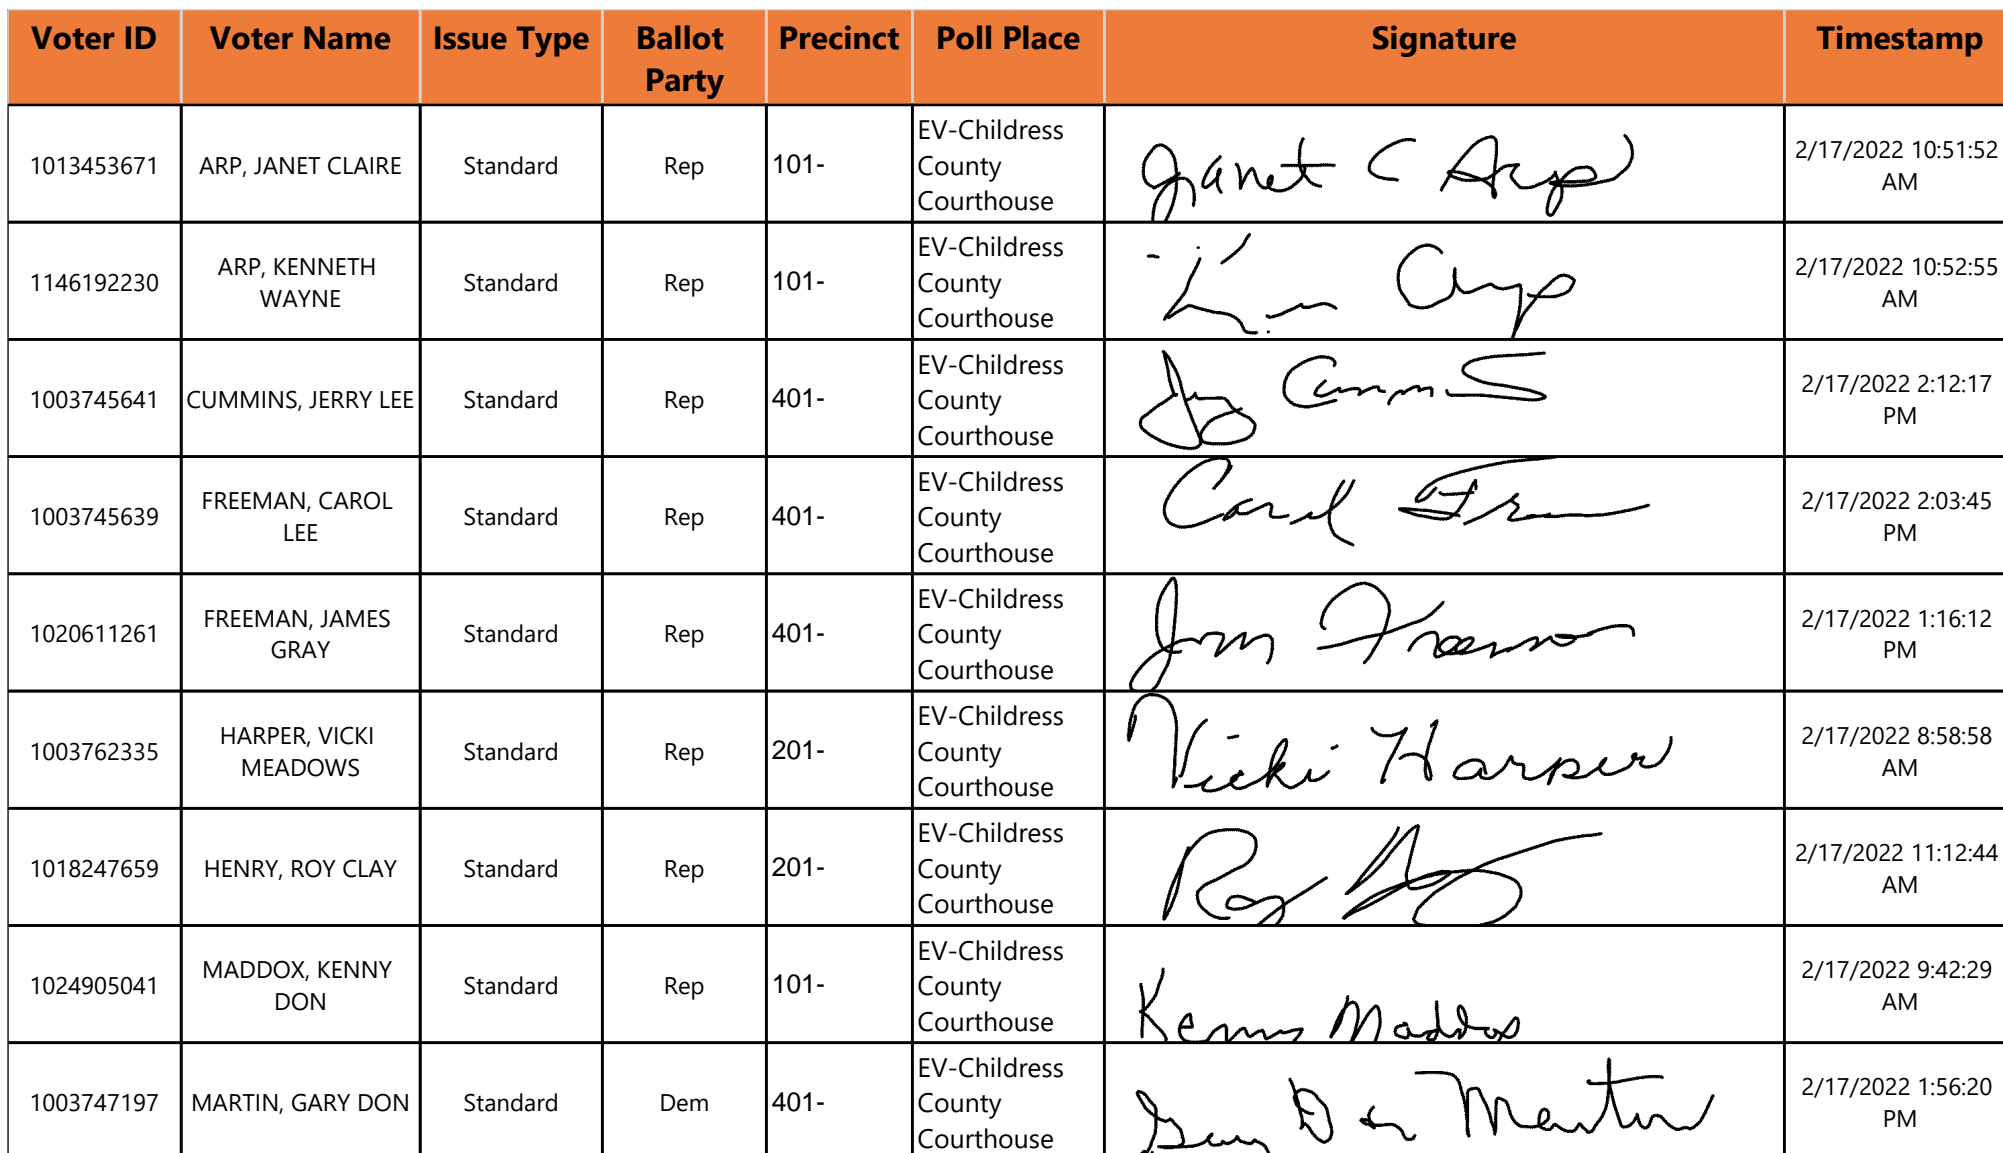 Voter ID Voter Name Issue Type Ballot Party Precinct Poll Place Signature Timestamp
1013453671 ARP, JANET CLAIRE Standard Rep 101- EV-Childress County Courthouse Janet C Arp 2/17/2022 10:51:52 AM
1146192230 ARP, KENNETH WAYNE Standard Rep 101- EV-Childress County Courthouse Arp 2/17/2022 10:52:55 AM
1003745641 CUMMINS, JERRY LEE Standard Rep 401- EV-Childress County Courthouse 2/17/2022 2:12:17 PM
1003745639 FREEMAN, CAROL LEE Standard Rep 401- EV-Childress County Courthouse Carol 2/17/2022 2:03:45 PM
1020611261 FREEMAN, JAMES GRAY Standard Rep 401- EV-Childress County Courthouse 2/17/2022 1:16:12 PM
1003762335 HARPER, VICKI MEADOWS Standard Rep 201- EV-Childress County Courthouse Vicki Harper 2/17/2022 8:58:58 AM
1018247659 HENRY, ROY CLAY Standard Rep 201- EV-Childress County Courthouse Roy 2/17/2022 11:12:44 AM
1024905041 MADDOX, KENNY DON Standard Rep 101- EV-Childress County Courthouse Kenny Maddox 2/17/2022 9:42:29 AM
1003747197 MARTIN, GARY DON Standard Dem 401- EV-Childress County Courthouse Gary Don Martin 2/17/2022 1:56:20 PM